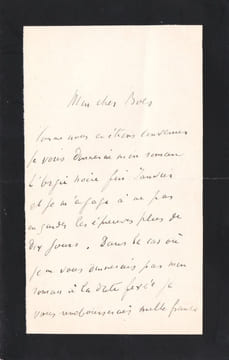 Mon cher Bois
Comme nous en étions convenus
je vous donnerai mon roman
L'orgie noire fin Janvier
et je m'engage à ne pas
en garder les épreuves plus de
dix jours. Dans le cas où
je ne vous donnerais pas mon
roman à la date fixée je
vous rembourserais mille francs